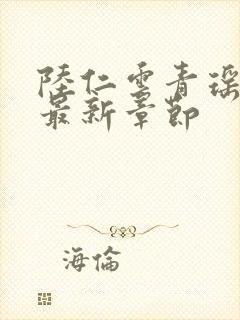 陸仁雲青瑶
最新章節
海倫